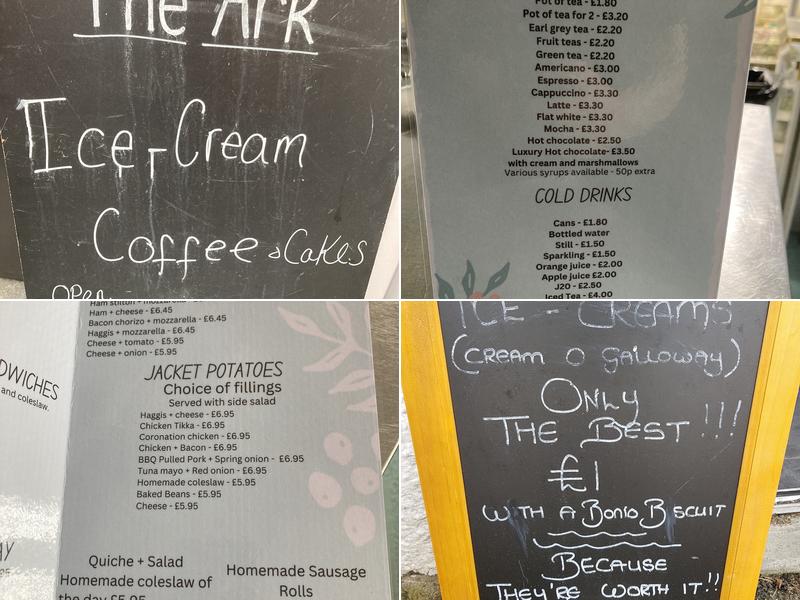 The Ark
Ice-Cream
Coffee & Cakes
Open
Pot of tea - £1.80
Pot of tea for 2 - £3.20
Earl grey tea - £2.20
Fruit teas - £2.20
Green tea - £2.20
Americano - £3.00
Espresso - £3.00
Cappuccino - £3.30
Latte - £3.30
Flat white - £3.30
Mocha - £3.30
Hot chocolate - £2.50
Luxury Hot chocolate- £3.50
with cream and marshmallows
Various syrups available - 50p extra
COLD DRINKS
Cans - £1.80
Bottled water
Still - £1.50
Sparkling - £1.50
Orange juice - £2.00
Apple juice £2.00
J2O - £2.50
Iced Tea - £4.00
Ham stilton + mozzarella
Ham + cheese - £6.45
Bacon chorizo + mozzarella - £6.45
Haggis + mozzarella - £6.45
Cheese + tomato - £5.95
Cheese + onion - £5.95
DWICHES
and coleslaw.
JACKET POTATOES
Choice of fillings
Served with side salad
Haggis + cheese - £6.95
Chicken Tikka - £6.95
Coronation chicken - £6.95
Chicken + Bacon - £6.95
BBQ Pulled Pork + Spring onion - £6.95
Tuna mayo + Red onion - £6.95
Homemade coleslaw - £5.95
Baked Beans - £5.95
Cheese - £5.95
Quiche + Salad
Homemade coleslaw of
the day £5.95
Homemade Sausage
Rolls
ICE - CREAMS
(CREAM O GALLOWAY)
ONLY
THE BEST !!!
£1
WITH A BONIO BISCUIT
BECAUSE
THEY'RE WORTH IT!!